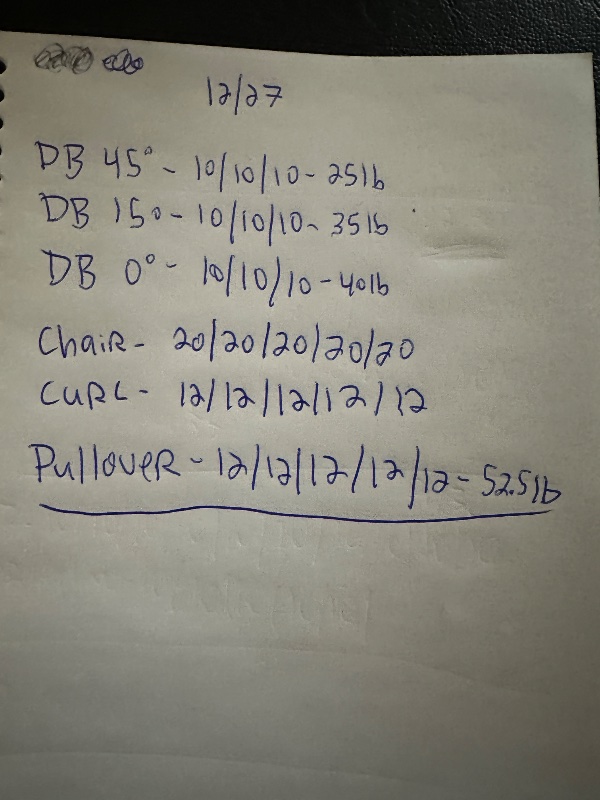 12/27
DB 45° - 10/10/10 - 25lb
DB 15° - 10/10/10 - 35lb
DB 0° - 10/10/10 - 40lb
Chair - 20/20/20/20/20
CURL - 12/12/12/12/12
PulloveR - 12/12/12/12/12 - 52.5lb